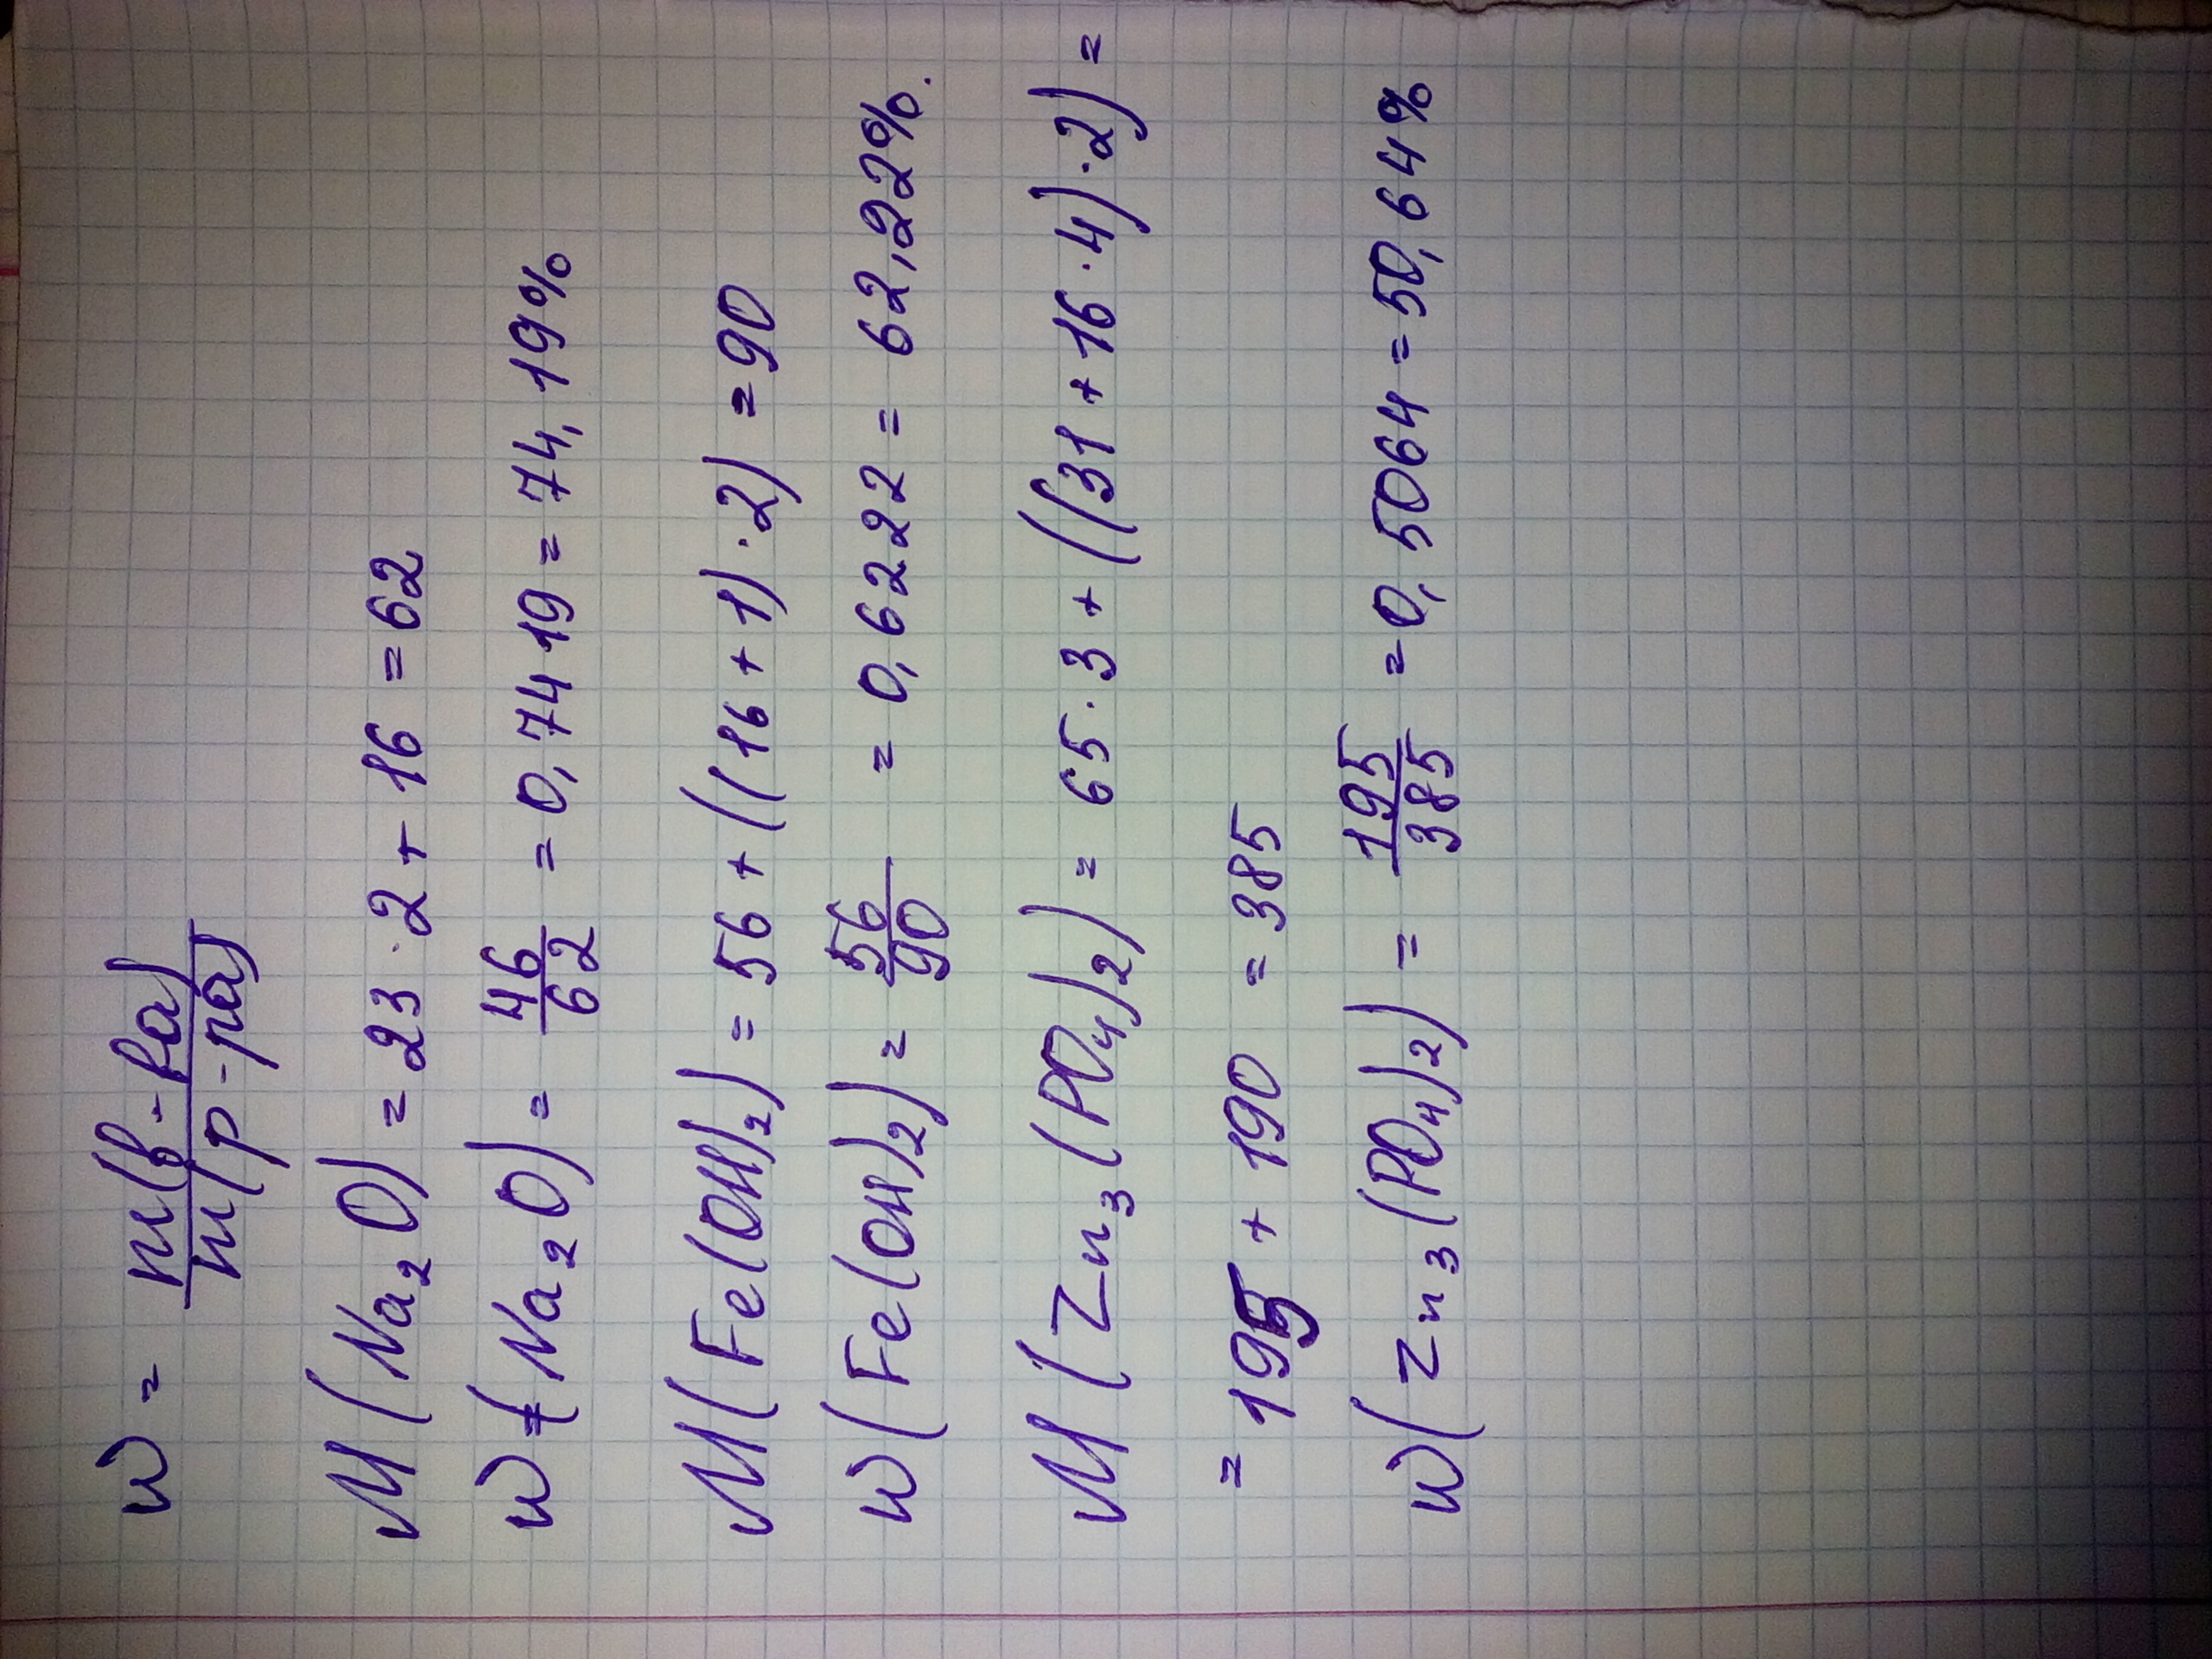 w = m(в-ва) / m(р-ра)
M(Na₂O) = 23·2 + 16 = 62
w(Na₂O) = 46/62 = 0,7419 = 74,19%
M(Fe(OH)₂) = 56 + ((16+1)·2) = 90
w(Fe(OH)₂) = 56/90 = 0,6222 = 62,22%.
M(Zn₃(PO₄)₂) = 65·3 + ((31+16·4)·2) =
= 195 + 190 = 385
w(Zn₃(PO₄)₂) = 195/385 = 0,5064 = 50,64%